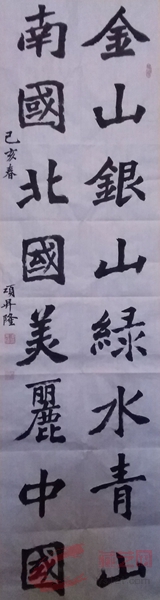 金山銀山綠水青山
南國北國美麗中國
己亥春
項昇隆